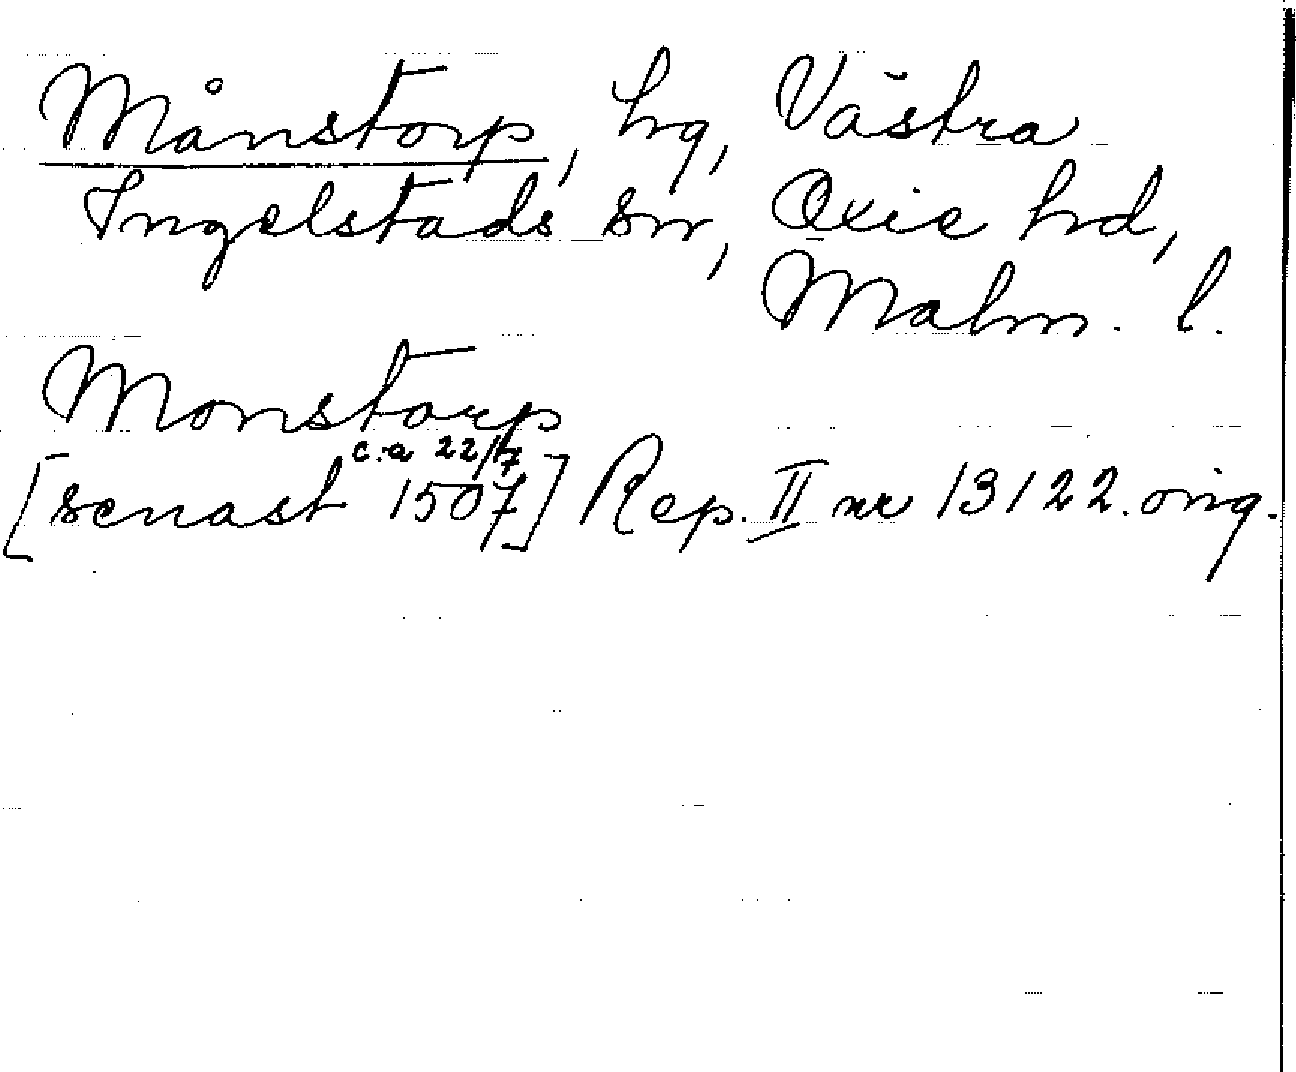 Månstorp, hg, Västra
Ingelstads sn, Oxie hd,
Malm. l.
Monstorp
c:a 22/7
[senast 1507] Rep. II nr 13122. orig.